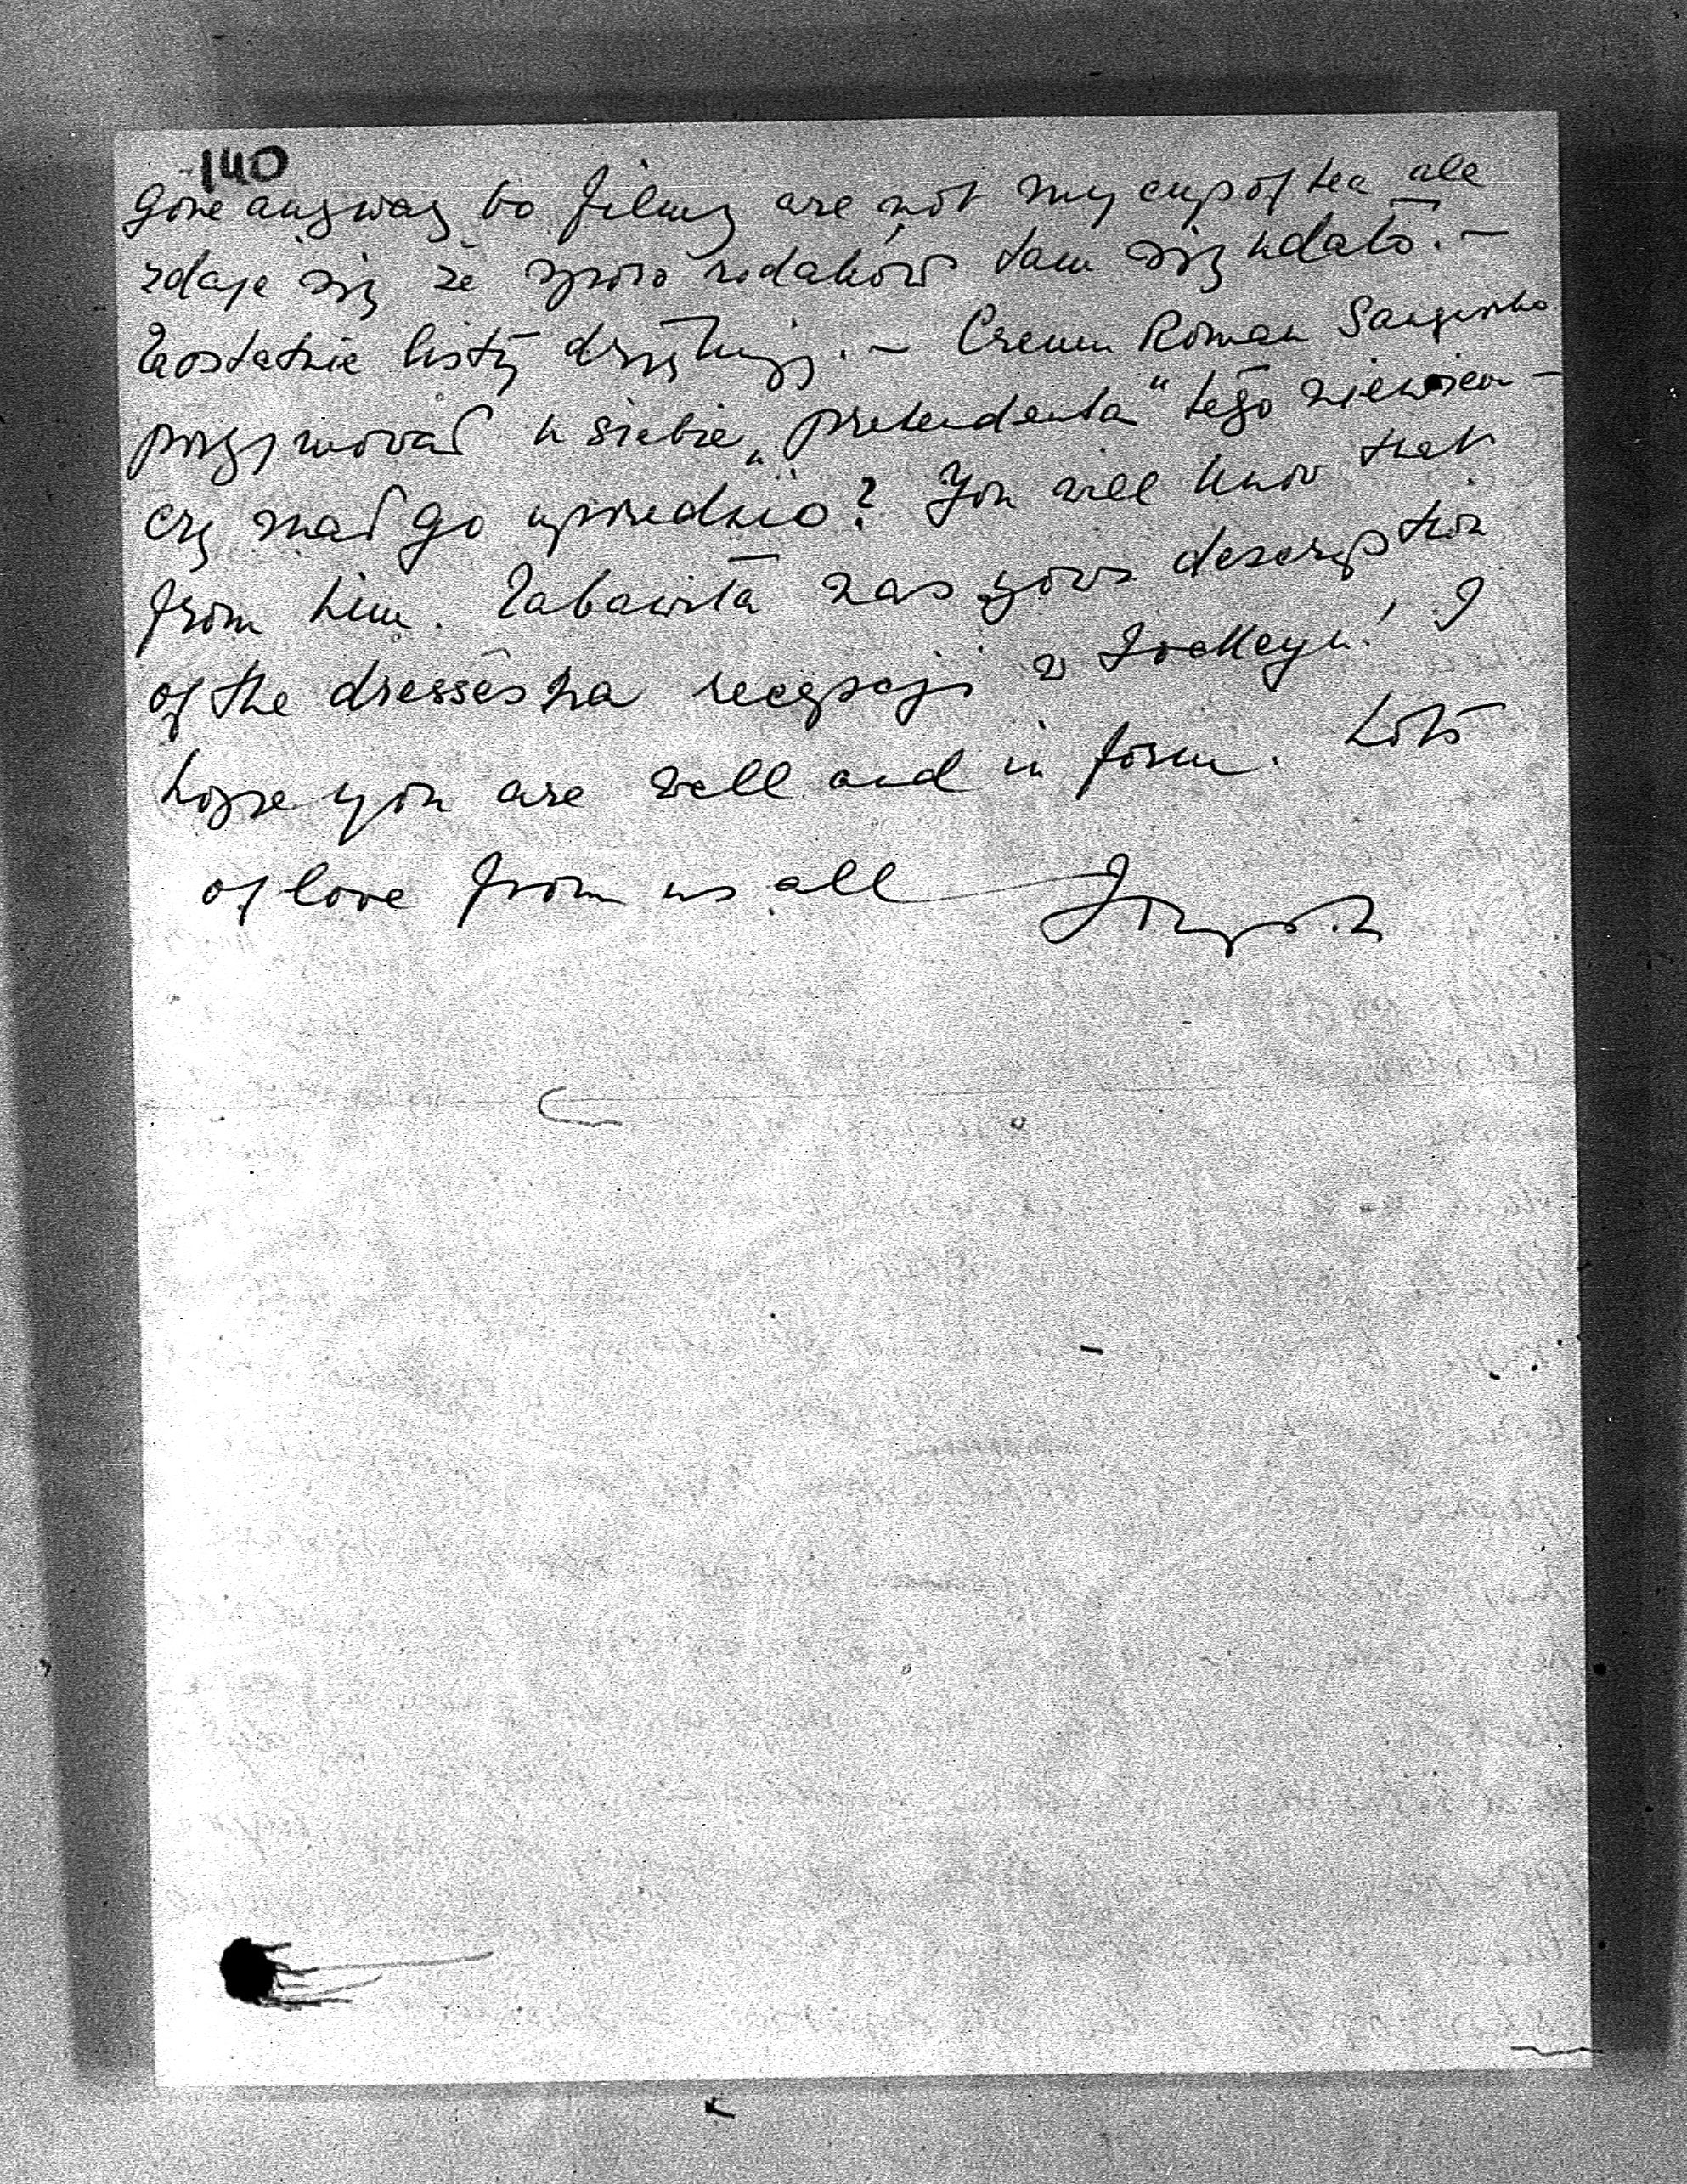 140
gone anyway bo filmy are not my cup of tea ale
zdaje się że sporo rodaków tam się udało. —
Za ostatnie listy dziękuję. — Czemu Roman Sanguszko
przyjmował u siebie „pretendenta" tego nie wiem —
czy znał go uprzednio? You will know that
from him. Zabawiła nas your description
of the dresses na recepcji w Jockeyu! I
hope you are well and in form. Lots
of love from us all